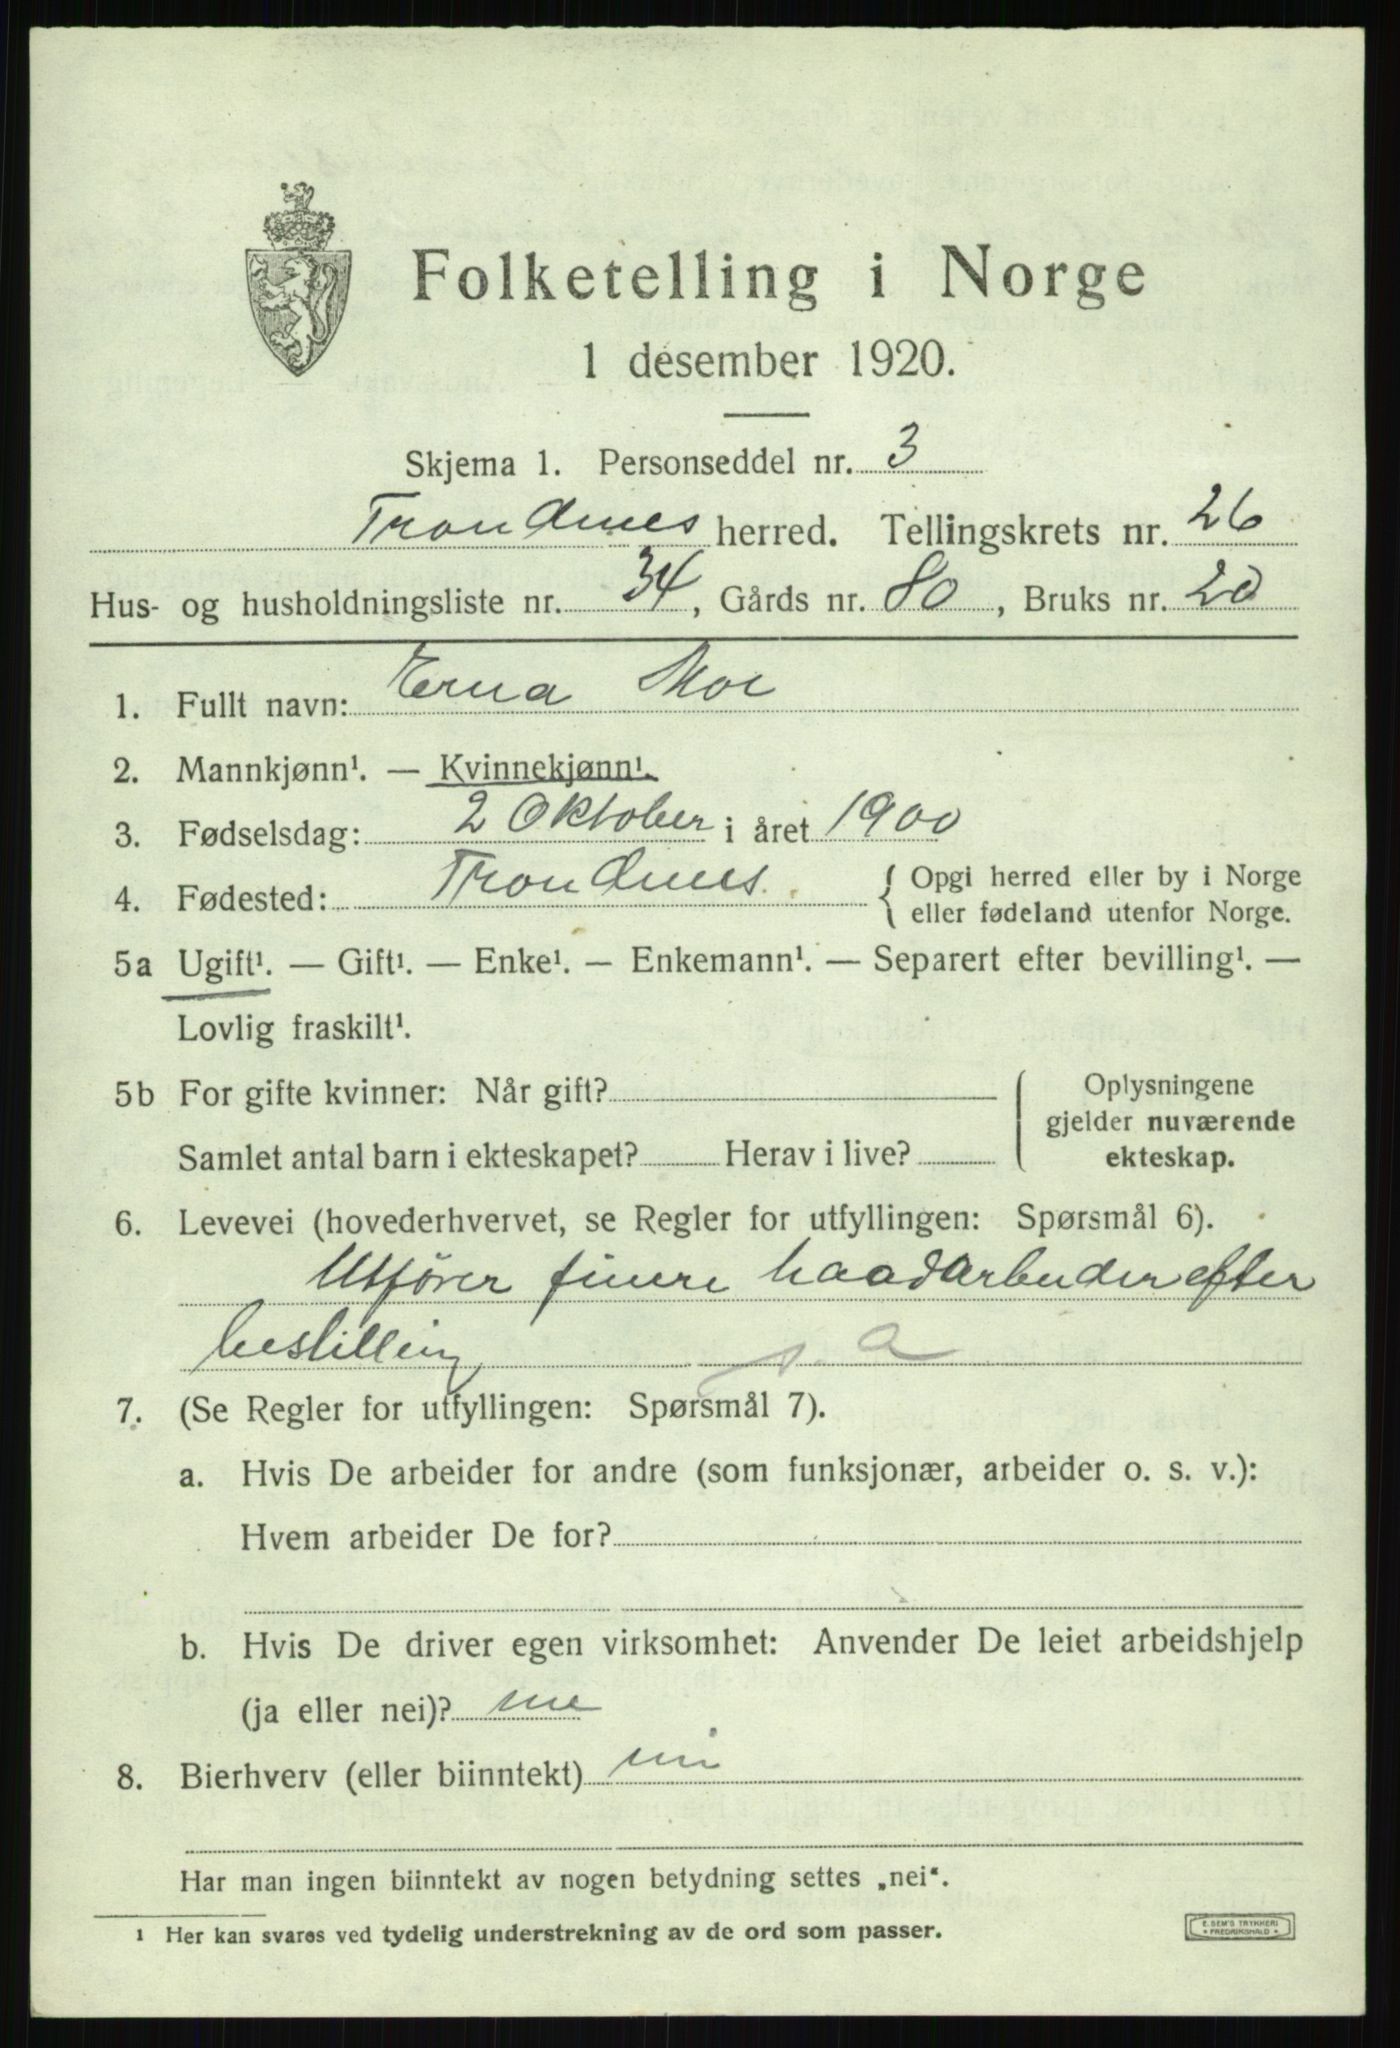 Folketelling i Norge
1 desember 1920.
Skjema 1. Personseddel nr. 3
Trondenes herred. Tellingskrets nr. 26
Hus- og husholdningsliste nr. 34, Gårds nr. 80, Bruks nr. 20
1. Fullt navn: Erna Moe
2. Mannkjønn¹. — Kvinnekjønn¹.
3. Fødselsdag: 2 Oktober i året 1900
4. Fødested: Trondenes { Opgi herred eller by i Norge
eller fødeland utenfor Norge.
5a Ugift¹. — Gift¹. — Enke¹. — Enkemann¹. — Separert efter bevilling¹. —
Lovlig fraskilt¹.
5b For gifte kvinner: Når gift?
Samlet antal barn i ekteskapet? Herav i live?
Oplysningene
gjelder nuværende
ekteskap.
6. Levevei (hovederhvervet, se Regler for utfyllingen: Spørsmål 6).
Utfører finere haadarbeider efter
bestilling s. a
7. (Se Regler for utfyllingen: Spørsmål 7).
a. Hvis De arbeider for andre (som funksjonær, arbeider o. s. v.):
Hvem arbeider De for?
b. Hvis De driver egen virksomhet: Anvender De leiet arbeidshjelp
(ja eller nei)? nei
8. Bierhverv (eller biinntekt) nei
Har man ingen biinntekt av nogen betydning settes „nei“.
¹ Her kan svares ved tydelig understrekning av de ord som passer.
E. SEM'S TRYKKERI
FREDRIKSHALD